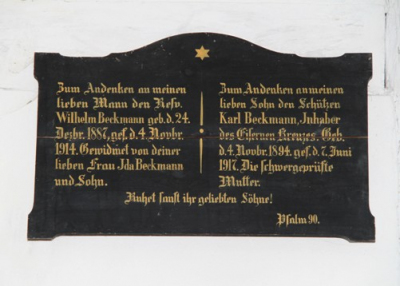 Zum Andenken an meinen
lieben Mann den Resv.
Wilhelm Beckmann geb. d. 24.
Dezbr. 1887, gef. d. 4. Novbr.
1914. Gewidmet von deiner
lieben Frau Ida Beckmann
und Sohn.
Zum Andenken an meinen
lieben Sohn den Schützen
Karl Beckmann, Inhaber
des Eisernen Kreuzes. Geb.
d. 4. Novbr. 1894. gef. d. 7. Juni
1917. Die schwergeprüfte
Mutter.
Ruhet sanft ihr geliebten Söhne!
Psalm 90.